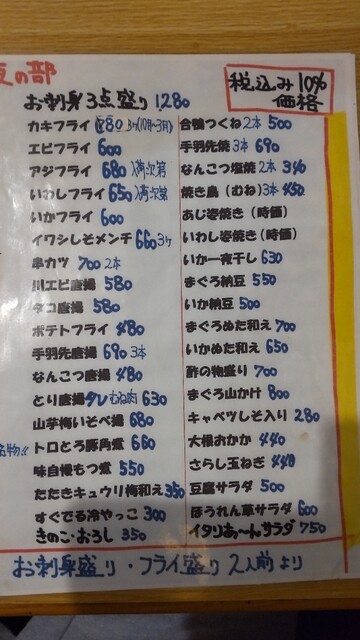 夜の部
税込み10%
価格
お刺身3点盛り 1,280
カキフライ 880 3ヶ(10月~3月)
エビフライ 600
アジフライ 680 入荷次第
いわしフライ 650 入荷次第
いかフライ 600
イワシしそメンチ 660 3ヶ
串カツ 700 2本
川エビ唐揚 580
タコ唐揚 580
ポテトフライ 480
手羽先唐揚 690 3本
なんこつ唐揚 480
とり唐揚タレ むね肉 630
山芋梅いそべ揚 680
名物!! トロとろ豚角煮 660
味自慢もつ煮 550
たたきキュウリ梅和え 350
すぐでる冷やっこ 300
きのこ・おろし 350
合鴨つくね 2本 500
手羽先焼 3本 690
なんこつ塩焼 2本 340
焼き鳥(むね)3本 450
あじ姿焼き(時価)
いわし姿焼き(時価)
いか一夜干し 630
まぐろ納豆 550
いか納豆 500
まぐろぬた和え 700
いかぬた和え 650
酢の物盛り 700
まぐろ山かけ 800
キャベツしそ入り 280
大根おかか 440
さらし玉ねぎ 440
豆腐サラダ 500
ほうれん草サラダ 600
イタリあ~んサラダ 750
お刺身盛り・フライ盛り 2人前より